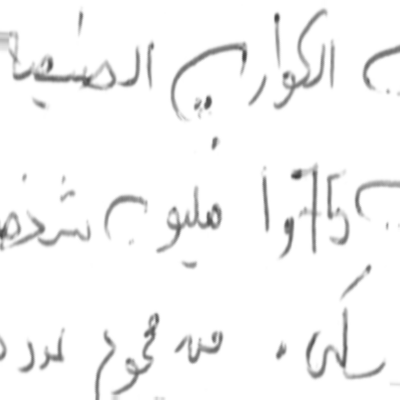 الكوارث الطبيعية
75 و 1 مليون شخص
من مجموع عدد